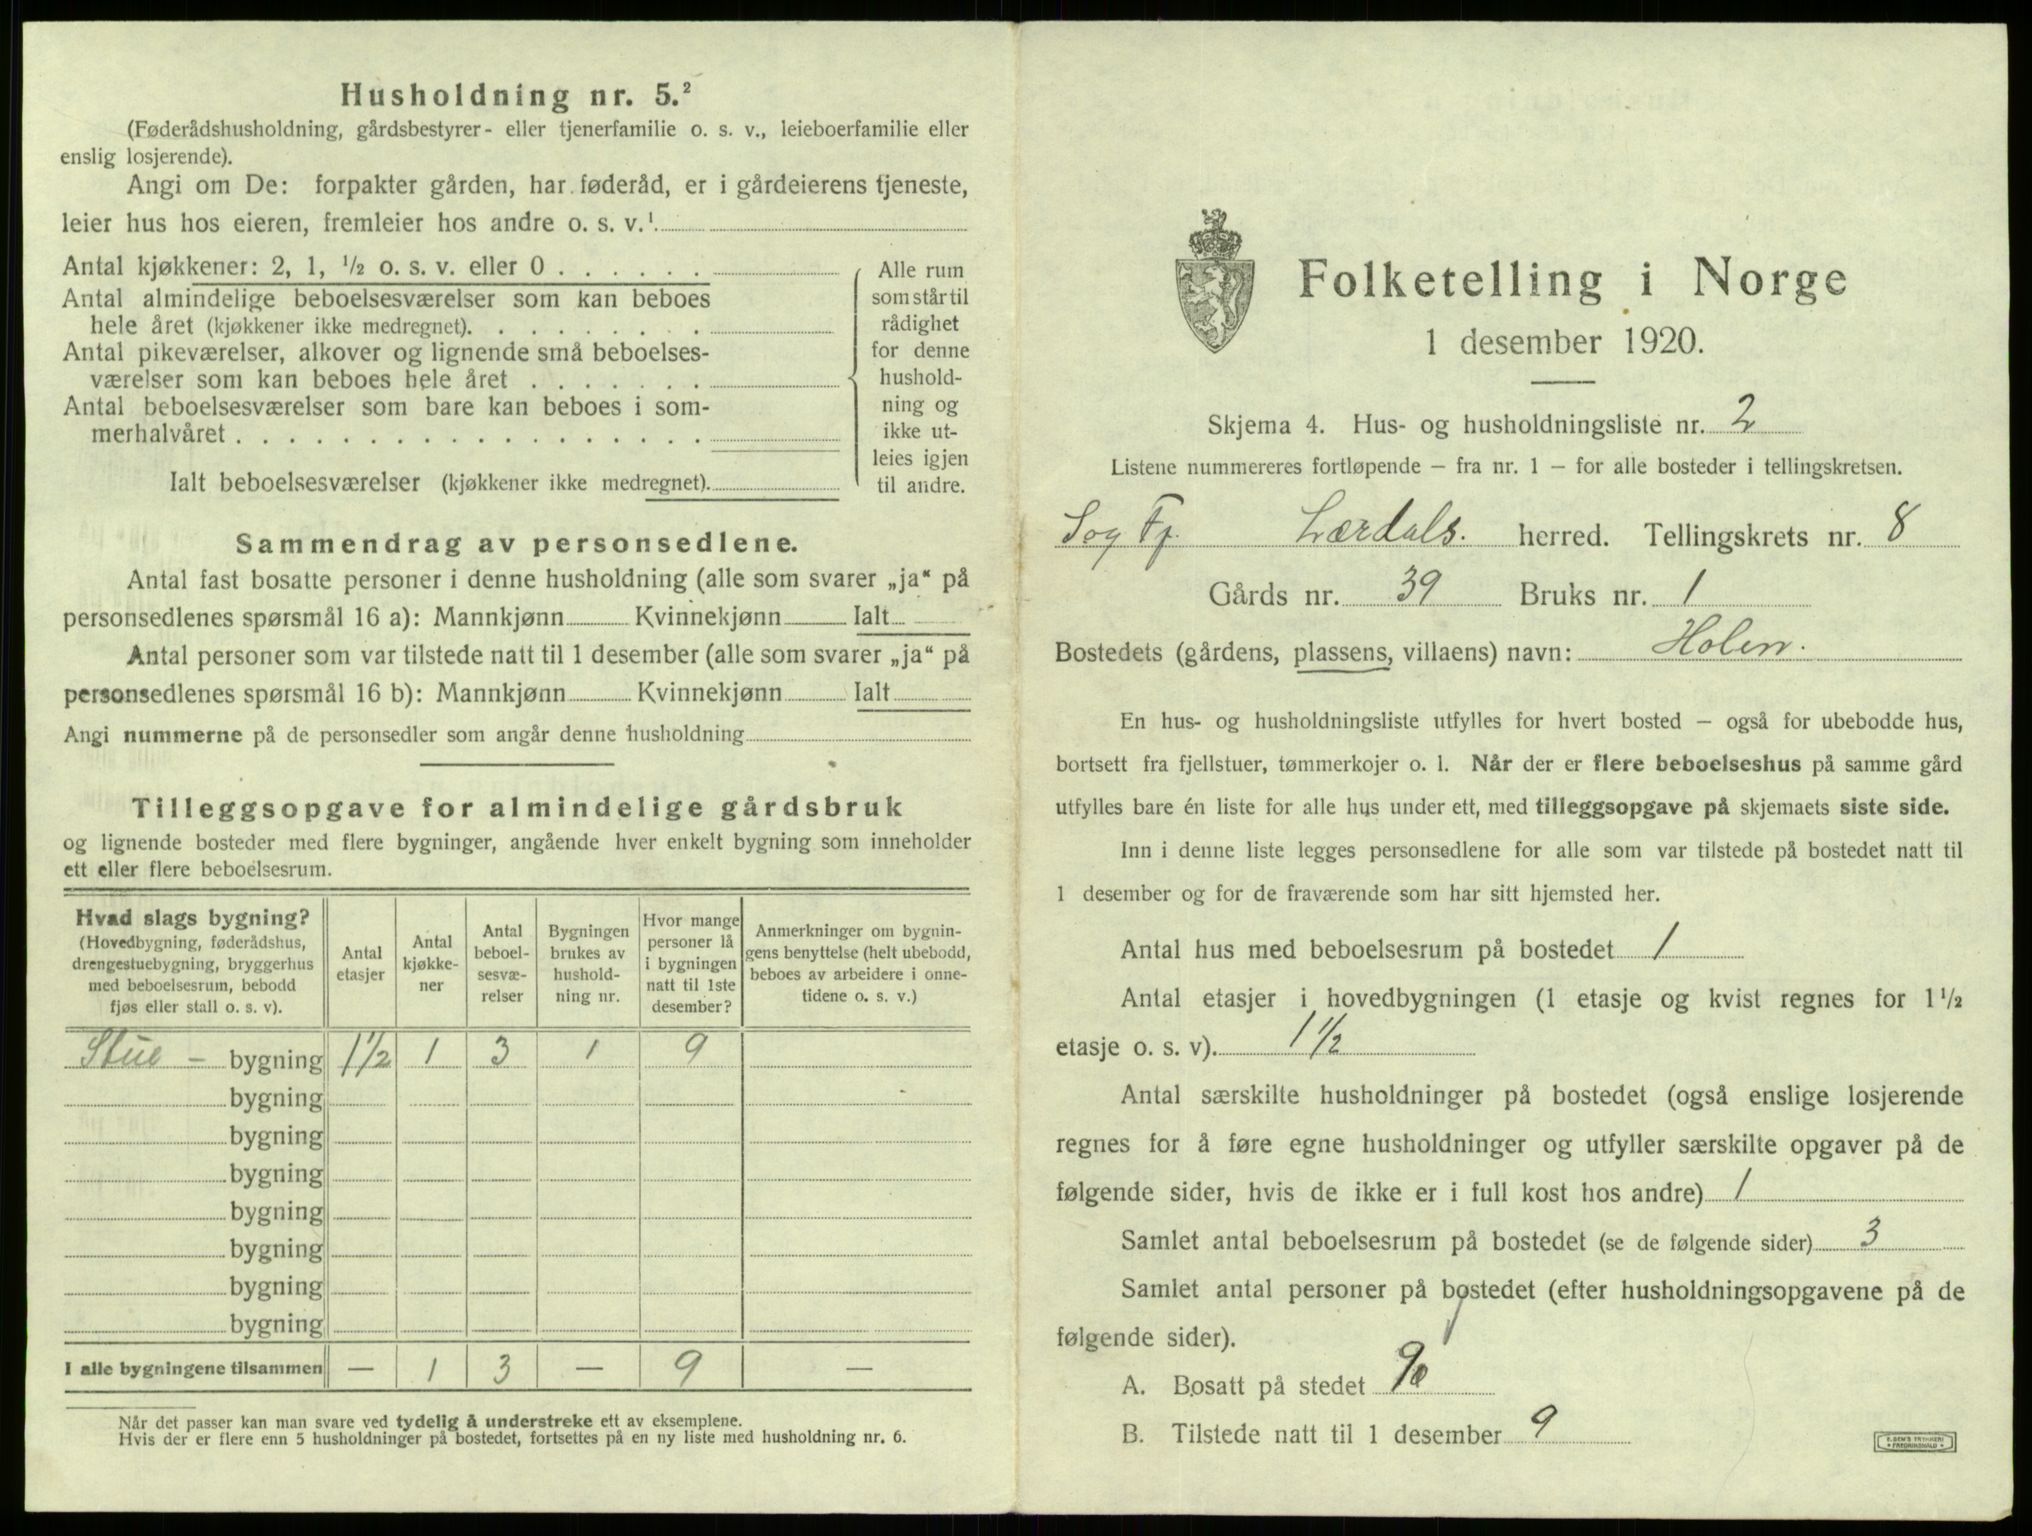 Husholdning nr. 5.²
(Føderådshusholdning, gårdsbestyrer- eller tjenerfamilie o. s. v., leieboerfamilie eller
enslig losjerende).
Angi om De: forpakter gården, har føderåd, er i gårdeierens tjeneste,
leier hus hos eieren, fremleier hos andre o. s. v.¹
Antal kjøkkener: 2, 1, ½ o. s. v. eller 0 . . . . . .
Antal almindelige beboelsesværelser som kan beboes
hele året (kjøkkener ikke medregnet). . . . . . . . .
Antal pikeværelser, alkover og lignende små beboelses-
værelser som kan beboes hele året . . . . . . .
Antal beboelsesværelser som bare kan beboes i som-
merhalvåret . . . . . . . . . . . . . . . . . .
Ialt beboelsesværelser (kjøkkener ikke medregnet).
Alle rum
som står til
rådighet
for denne
hushold-
ning og
ikke ut-
leies igjen
til andre.
Sammendrag av personsedlene.
Antal fast bosatte personer i denne husholdning (alle som svarer „ja“ på
personsedlenes spørsmål 16 a): Mannkjønn Kvinnekjønn Ialt
Antal personer som var tilstede natt til 1 desember (alle som svarer „ja“ på
personsedlenes spørsmål 16 b): Mannkjønn Kvinnekjønn Ialt
Angi nummerne på de personsedler som angår denne husholdning
Tilleggsopgave for almindelige gårdsbruk
og lignende bosteder med flere bygninger, angående hver enkelt bygning som inneholder
ett eller flere beboelsesrum.
Hvad slags bygning?
(Hovedbygning, føderådshus,
drengestuebygning, bryggerhus
med beboelsesrum, bebodd
fjøs eller stall o. s. v).
Antal
etasjer
Antal
kjøkke-
ner
Antal
beboel-
sesvæ-
relser
Bygningen
brukes av
hushold-
ning nr.
Hvor mange
personer lå
i bygningen
natt til 1ste
desember?
Anmerkninger om bygnin-
gens benyttelse (helt ubebodd,
beboes av arbeidere i onne-
tidene o. s. v.)
Stue - bygning 1½ 1 3 1 9
bygning
bygning
bygning
bygning
bygning
bygning
bygning
I alle bygningene tilsammen — 1 3 — 9 —
Når det passer kan man svare ved tydelig å understreke ett av eksemplene.
Hvis der er flere enn 5 husholdninger på bostedet, fortsettes på en ny liste med husholdning nr. 6.
Folketelling i Norge
1 desember 1920.
Skjema 4. Hus- og husholdningsliste nr. 2
Listene nummereres fortløpende – fra nr. 1 – for alle bosteder i tellingskretsen.
Sog Fj. Lærdals. herred. Tellingskrets nr. 8
Gårds nr. 39 Bruks nr. 1
Bostedets (gårdens, plassens, villaens) navn: Holen.
En hus- og husholdningsliste utfylles for hvert bosted – også for ubebodde hus,
bortsett fra fjellstuer, tømmerkojer o. l. Når der er flere beboelseshus på samme gård
utfylles bare én liste for alle hus under ett, med tilleggsopgave på skjemaets siste side.
Inn i denne liste legges personsedlene for alle som var tilstede på bostedet natt til
1 desember og for de fraværende som har sitt hjemsted her.
Antal hus med beboelsesrum på bostedet 1
Antal etasjer i hovedbygningen (1 etasje og kvist regnes for 1½
etasje o. s. v). 1½
Antal særskilte husholdninger på bostedet (også enslige losjerende
regnes for å føre egne husholdninger og utfyller særskilte opgaver på de
følgende sider, hvis de ikke er i full kost hos andre) 1
Samlet antal beboelsesrum på bostedet (se de følgende sider) 3
Samlet antal personer på bostedet (efter husholdningsopgavene på de
følgende sider).
A. Bosatt på stedet 9
B. Tilstede natt til 1 desember 9